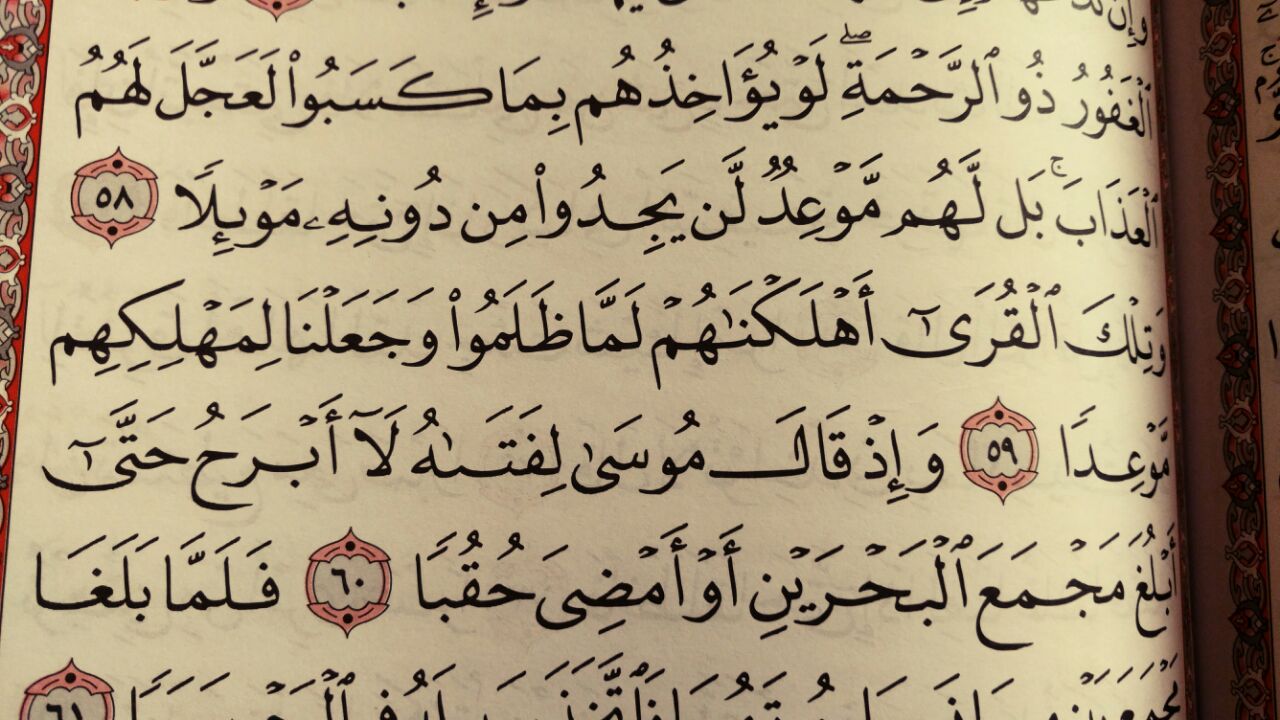 ٱلْغَفُورُ ذُو ٱلرَّحْمَةِ ۖ لَوْ يُؤَاخِذُهُم بِمَا كَسَبُوا۟ لَعَجَّلَ لَهُمُ
ٱلْعَذَابَ ۚ بَل لَّهُم مَّوْعِدٌ لَّن يَجِدُوا۟ مِن دُونِهِۦ مَوْئِلًا ٥٨
وَتِلْكَ ٱلْقُرَىٰٓ أَهْلَكْنَٰهُمْ لَمَّا ظَلَمُوا۟ وَجَعَلْنَا لِمَهْلِكِهِم
مَّوْعِدًا ٥٩ وَإِذْ قَالَ مُوسَىٰ لِفَتَىٰهُ لَآ أَبْرَحُ حَتَّىٰٓ
أَبْلُغَ مَجْمَعَ ٱلْبَحْرَيْنِ أَوْ أَمْضِىَ حُقُبًا ٦٠ فَلَمَّا بَلَغَا
٦١